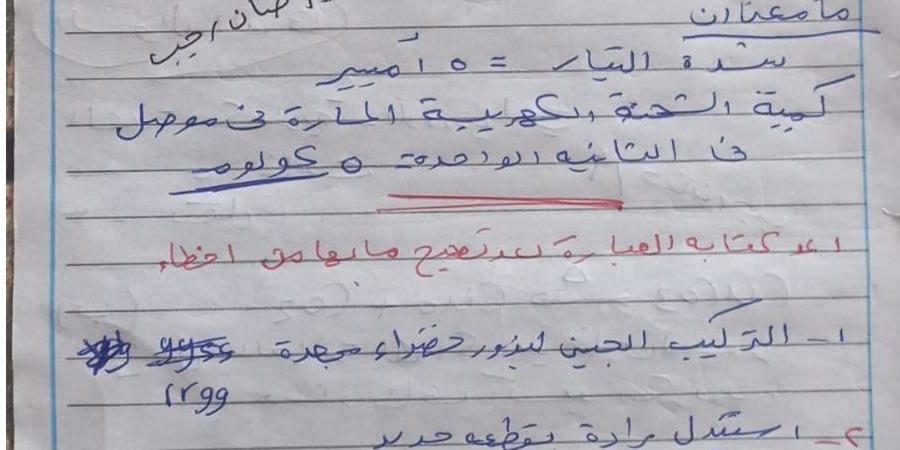 ما معنى أن
شدة التيار = ٥ أمبير
كمية الشحنة الكهربية المارة فى موصل
فى الثانية الواحدة = ٥ كولوم
اعد كتابة العبارة بعد تصحيح ما بها من اخطاء
١ - التركيب الجينى لبذور خضراء مجعدة
yyrr
٢ - استبدل برادة بقطعه حديد